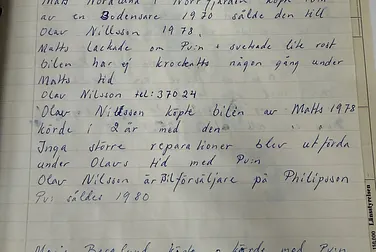 Matts Nordlund i Norrfjärden köpte
av en Bodensare 1970 sålde den till
Olav Nillsson 1978.
Matts lackade om PV:n + svetsade lite rost
bilen har ej krockatts någon gång under
Matts tid
Olav Nilsson tel: 37024
Olav Nilsson köpte bilen av Matts 1978
körde i 2 år med den
Inga större reparationer blev utförda
under Olavs tid med PV:n
Olav Nilsson är Bilförsäljare på Philipsson
PV: såldes 1980
Berglund körde PV:n
Länsstyrelsen